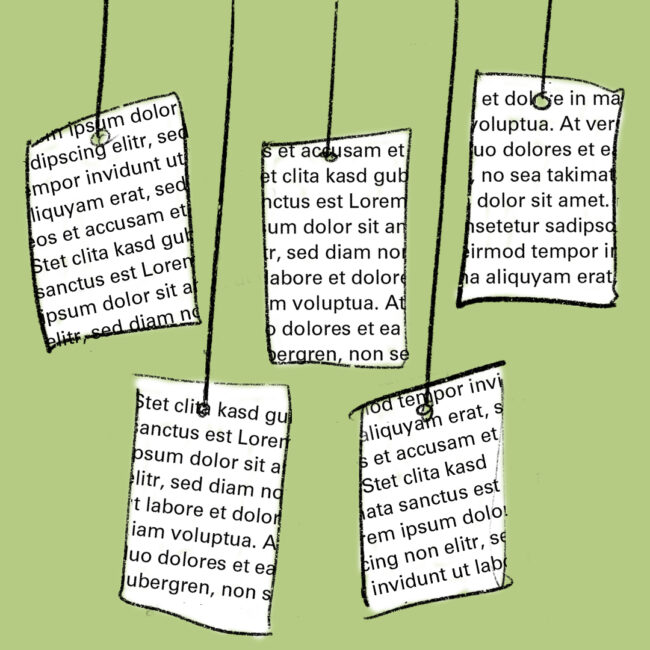 m ipsum dolor
dipscing elitr, sed
mpor invidunt ut
liquyam erat, sed
eos et accusam et
Stet clita kasd gub
sanctus est Loren
ipsum dolor sit a
elitr, sed diam no
s et accusam et
et clita kasd gub
nctus est Lorem
um dolor sit an
r, sed diam non
labore et dolore
m voluptua. At
o dolores et ea
bergren, non se
et dolore in ma
voluptua. At ver
uo dolores et e
, no sea takimat
dolor sit amet.
nsetetur sadipsc
eirmod tempor in
na aliquyam erat,
Stet clita kasd gu
sanctus est Loren
psum dolor sit a
elitr, sed diam no
t labore et dolor
iam voluptua. A
uo dolores et ea
ubergren, non s
mod tempor invi
aliquyam erat, s
s et accusam et
Stet clita kasd
ata sanctus est
rem ipsum dolo
cing non elitr, se
invidunt ut labo